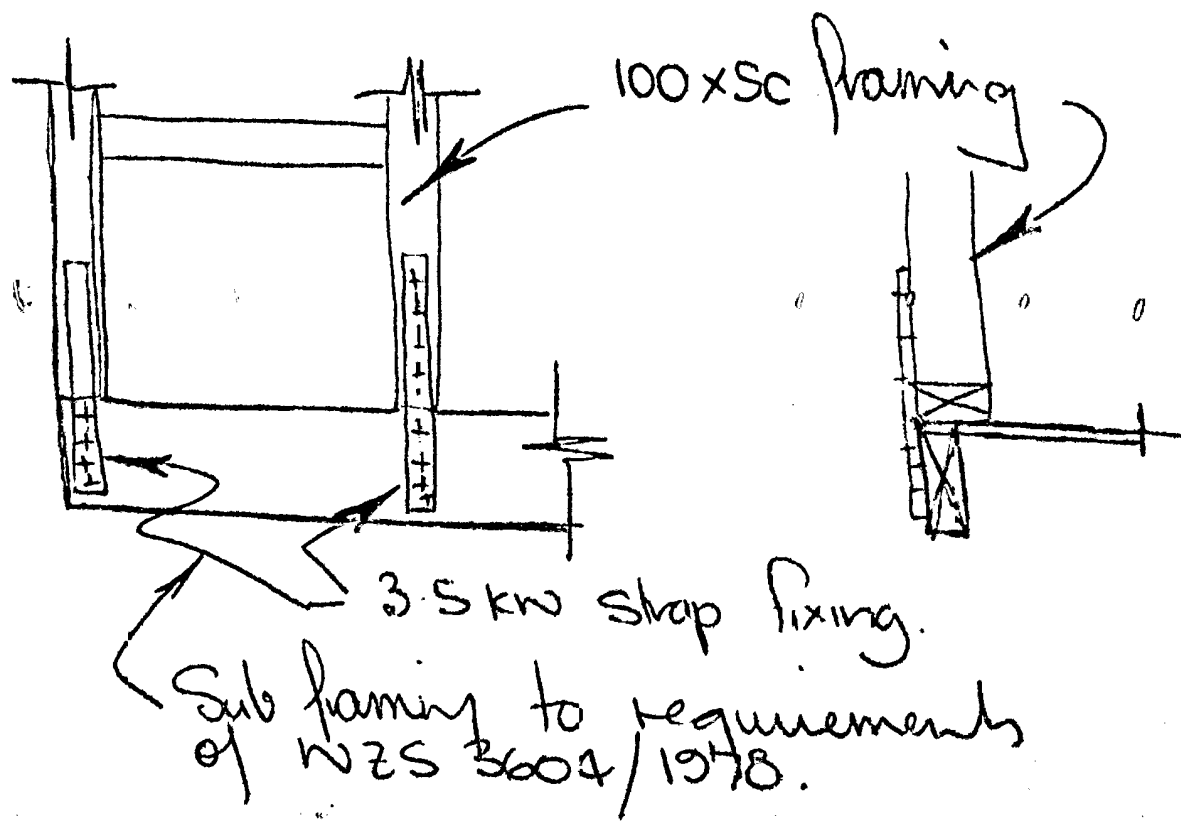 100 x 50 framing
3.5 kN strap fixing.
Sub framing to requirements
of NZS 3604/1978.